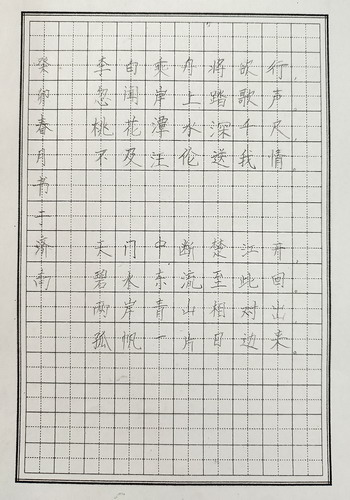 李白乘舟将欲行，
忽闻岸上踏歌声。
桃花潭水深千尺，
不及汪伦送我情。
天门中断楚江开，
碧水东流至此回。
两岸青山相对出，
孤帆一片日边来。
癸卯春月书于济南